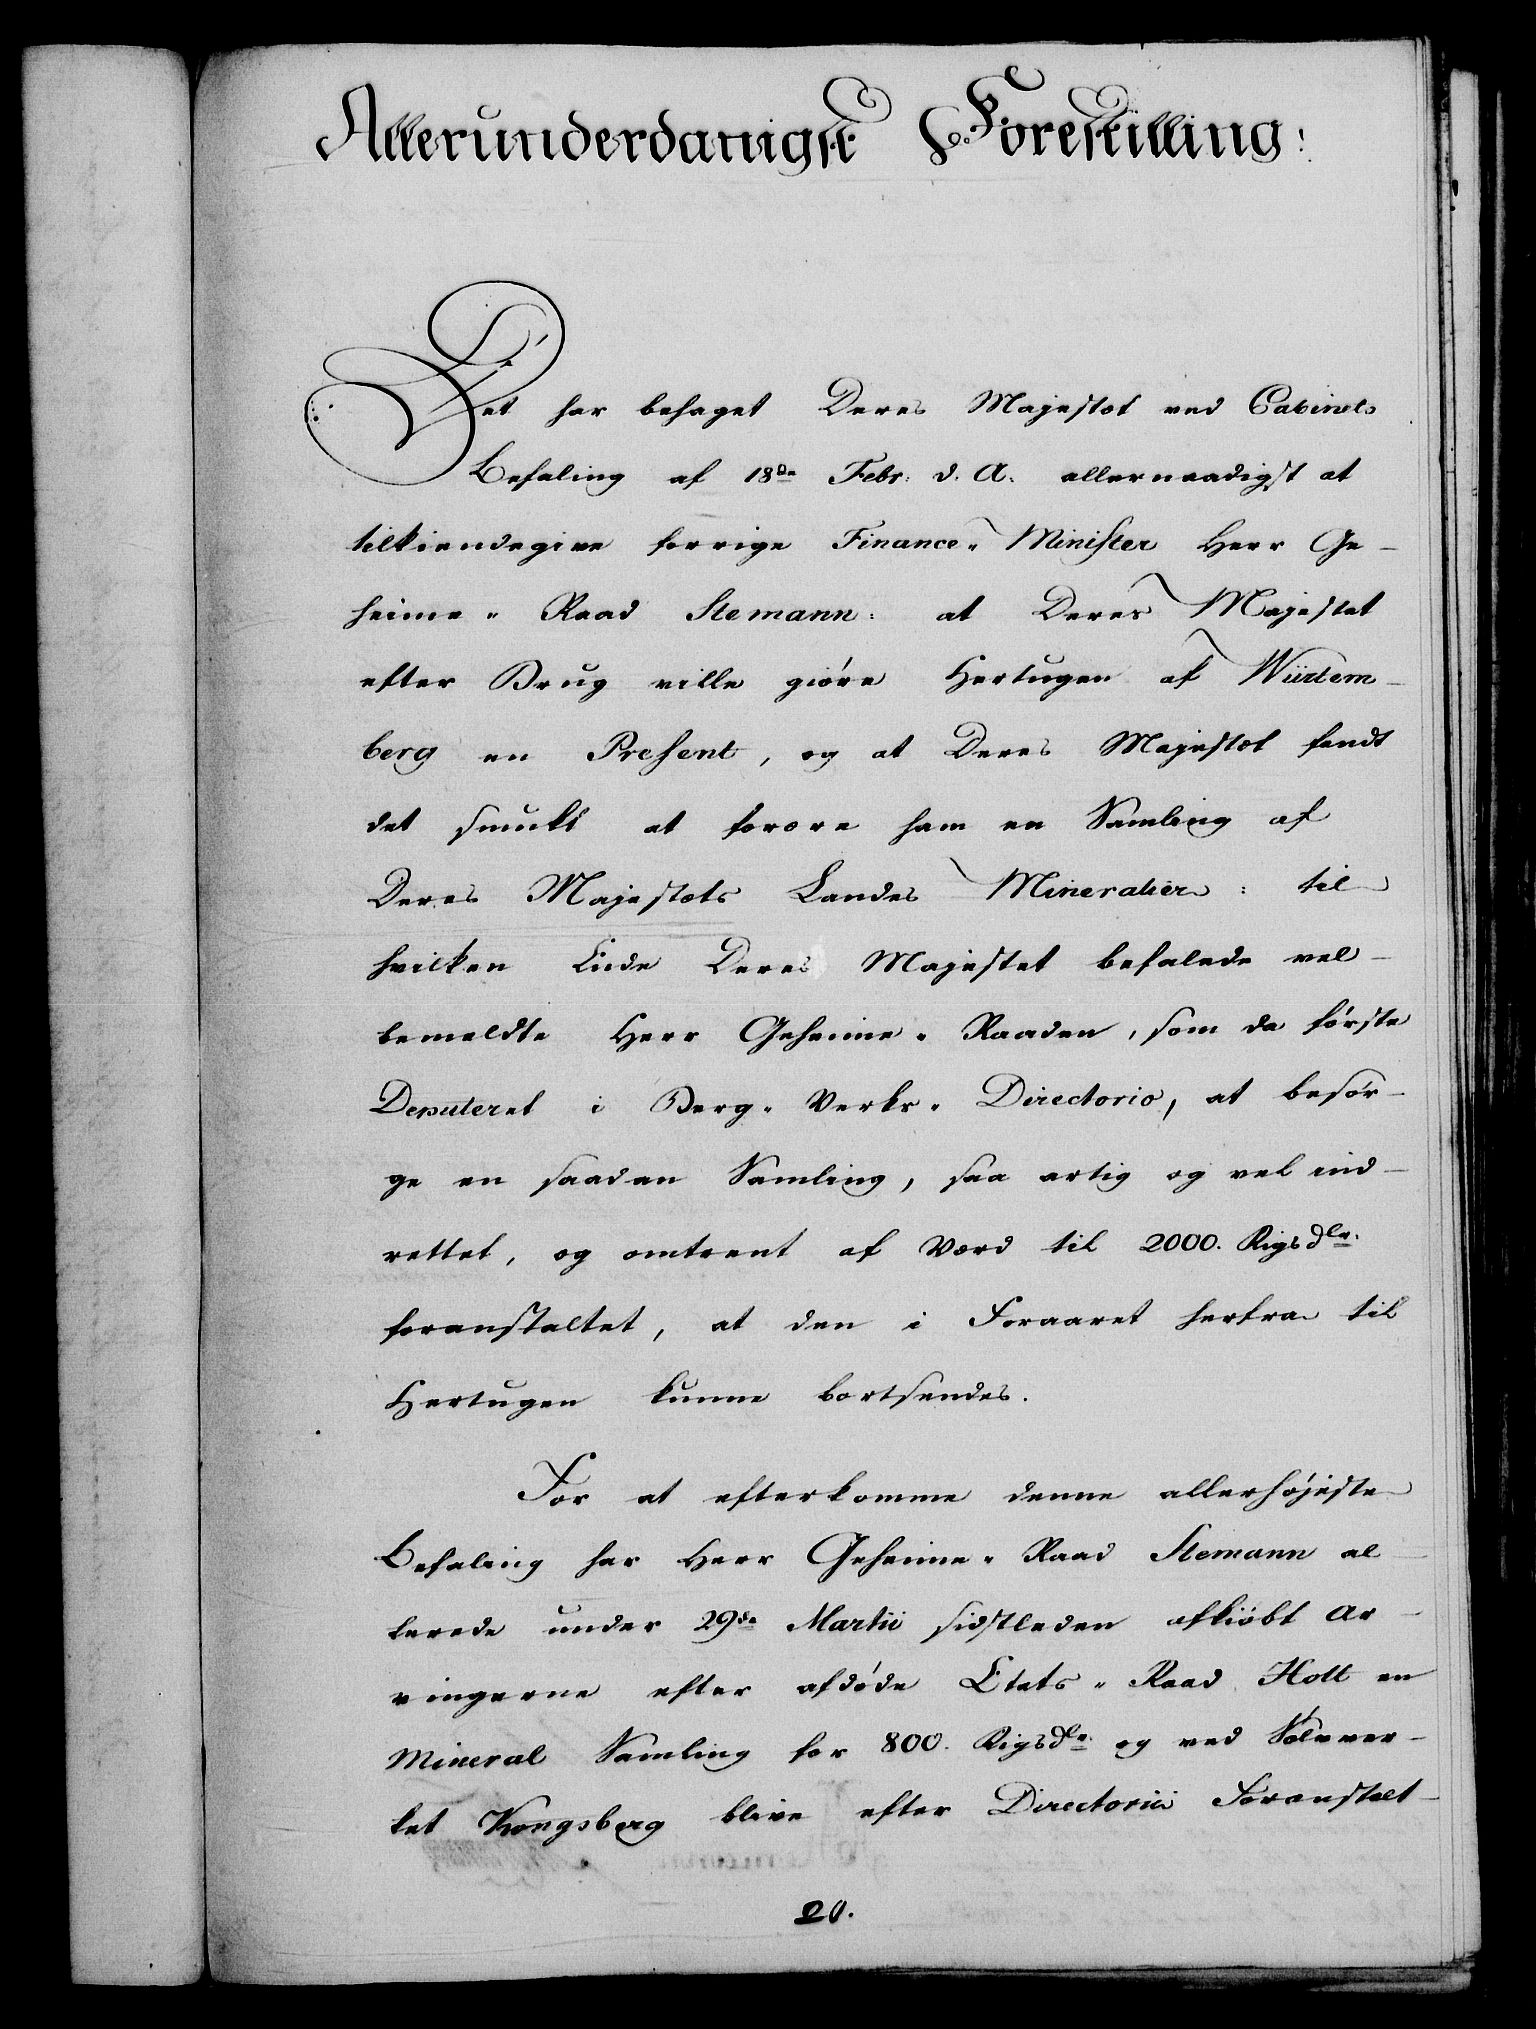 Allerunderdanigst Forestilling:
Det har behaget Deres Majestet ved Cabinets
Befaling af 18de Febr: d. A. allernaadigst at
tilkiendegive forrige Finance- Minister Herr Ge-
heime- Raad Stemann: at Deres Majestet
efter Brug ville giøre Hertugen af Würtem-
berg en Present, og at Deres Majestet fandt
det smukt at forære ham en Samling af
Deres Majestets Landes Mineralier: til
hvilken Ende Deres Majestet befalede vel-
bemeldte Herr Geheime- Raaden, som da første
Deputeret i Berg- Verks- Directorio, at besør-
ge en saadan Samling, saa artig og vel ind-
rettet, og omtrent af Værd til 2000. Rigsdlr.
foranstaltet, at den i Foraaret herfra til
Hertugen kunne bortsendes.
For at efterkomme denne allerhøjeste
Befaling har Herr Geheime- Raad Stemann al
lerede under 29de Martii sidstleden afkiøbt Ar-
vingerne efter afdøde Etats- Raad Holt en
Mineral Samling for 800. Rigsdlr. og ved Sølvver-
ket Kongsberg blive efter Directorii Foranstalt-
20.